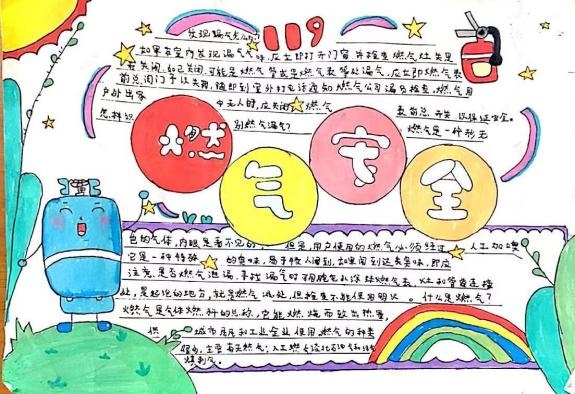 发现漏气怎么办?
119
如果在室内发现漏气气味,应立即打开门窗并检查燃气灶是
否关闭,如已关闭,可能是燃气管或是燃气表等处漏气,应立即燃气表
前总闭门予以关闭,随即到室外打电话通知燃气公司漏气检查,燃气用
户外出家中无人时,应关闭燃气表前总开关,以保证安全。
怎样识别燃气漏气? 燃气是一种形无
燃气安全
色的气体,肉眼是看不见的,但是,用户使用的燃气必须经过人工加嗅
它是一种特殊的臭味,易于被人闻到,如果闻到达类臭味,即应
注意,是否燃气泄漏,寻找漏气时用肥皂水涂抹燃气表,灶和管道连接
处,是起泡的地方,就是燃气泄处,但检查不能使用明火。什么是燃气?
燃气是气体燃料的总称,它能燃烧而放出热量,
供城市居民和工业企业使用燃气的种类
很多,主要有天然气,人工燃气液化石油气和
煤制气。